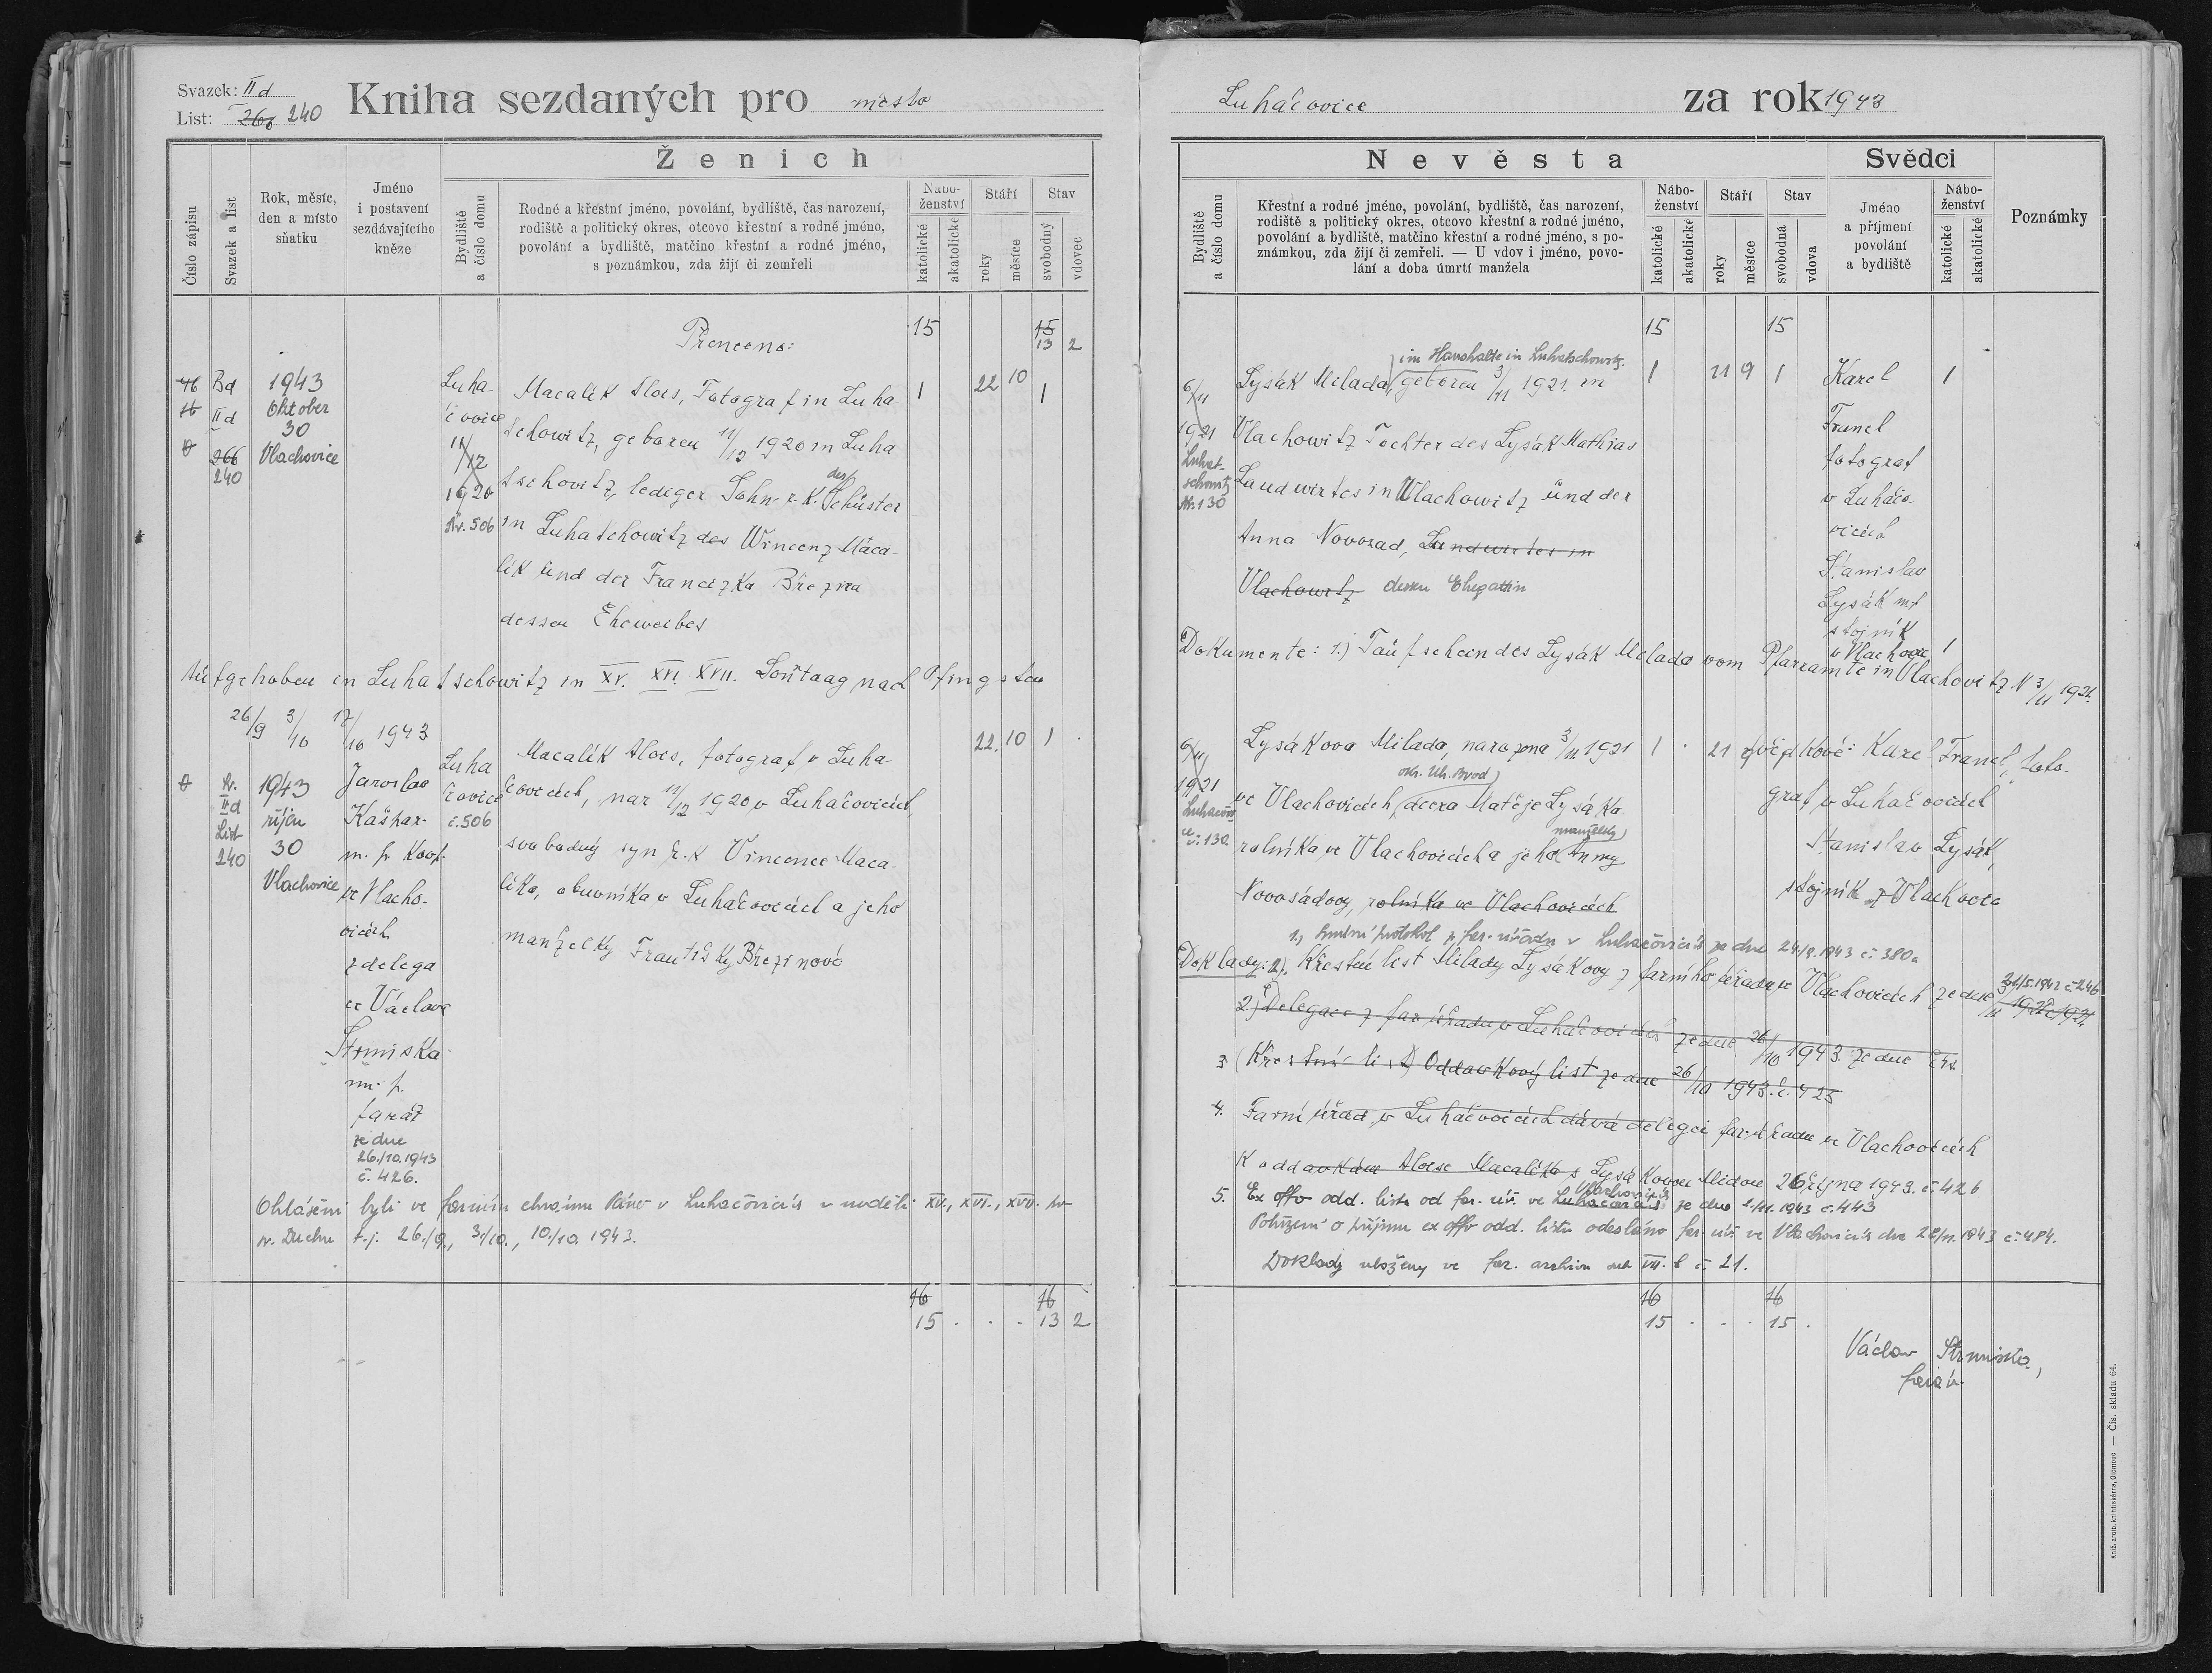 Svazek: II d
List: 266 240
Kniha sezdaných pro město
Číslo zápisu
Svazek a list
Rok, měsíc,
den a místo
sňatku
Jméno
i postavení
sezdávajícího
kněze
Ženich
Bydliště
a číslo domu
Rodné a křestní jméno, povolání, bydliště, čas narození,
rodiště a politický okres, otcovo křestní a rodné jméno,
povolání a bydliště, matčino křestní a rodné jméno,
s poznámkou, zda žijí či zemřeli
Nábo-
ženství
katolické
akatolické
Stáří
roky
měsíce
Stav
svobodný
vdovec
Přeneeno:
15
15
13 2
46 Bd
16 II d
266
240
1943
Oktober
30
Vlachovice
Luha-
čovice
11/12
1920
Nr. 506
Macalík Alois, Fotograf in Luha
tschowitz, geboren 11/12 1920 in Luha
tschovitz, lediger Sohn r. K. des Schüster
in Luhatschowitz des Wincenz Maca-
lik und der Franciszka Březina
dessen Eheweibes
1 22 10 1
Aufgehoben in Luhatschowitz in XV. XVI. XVII. Sontaag nach Pfingsten
26/9 3/10 17/10 1943
Nr.
II d
List
240
1943
říjen
30
Vlachovice
Jaroslav
Kašpar-
m. p. Koop.
ve Vlacho-
vicích
z delega
ce Václava
Strmiska
m. p.
farář
ze dne
26./10.1943
č. 426.
Luha
čovice
č. 506
Macalík Alois, fotograf v Luha-
čovicích, nar 11/12 1920 v Luhačovicích,
svobodný syn ř. k Vincence Maca-
líka, obuvníka v Luhačovicích a jeho
manželky Františky Březinové
22. 10 1 .
Ohlášeni byli ve farním chrámu Páně v Luhačovicích v neděli XV., XVI., XVII. po
sv. Duchu t. j. 26./9., 3./10., 10./10. 1943.
16 16
15 . . . 13 2
Luháčovice za rok 1943
Nevěsta
Bydliště
a číslo domu
Křestní a rodné jméno, povolání, bydliště, čas narození,
rodiště a politický okres, otcovo křestní a rodné jméno,
povolání a bydliště, matčino křestní a rodné jméno, s po-
známkou, zda žijí či zemřeli. — U vdov i jméno, povo-
lání a doba úmrtí manžela
Nábo-
ženství
katolické
akatolické
Stáří
roky
měsíce
Stav
svobodná
vdova
Svědci
Jméno
a příjmení
povolání
a bydliště
Nábo-
ženství
katolické
akatolické
Poznámky
15 15
6/11
1921
Luhat-
schowitz
Nr. 130
im Haushalte in Luhatschowitz.
Lysák Milada, geboren 3/11 1921 in
Vlachowitz Tochter des Lysák Mathias
Landwirtes in Vlachowitz ünd der
Anna Novosad, Landwirtes in
Vlachowitz dessen Ehegattin
1 21 9 1
Karel
Franel
fotograf
v Luháčo-
vicích
Stanislav
Lysák mf
stojník
v Vlachovic
1
1
Dokumente: 1.) Taufschein des Lysák Milada vom Pfarramte in Vlachovitz N 3/11 1921.
6/11
1921
Luhačovi
ce
č. 130
Lysákova Milada, narozena 3/11 1921
okr. Uh. Brod
ve Vlachovicích, dcera Matěje Lysáka
manželky
rolníka ve Vlachovicích a jeho Anny
Novosádovy, rolníka ve Vlachovicích
1 . 21
svědkové: Karel Franel, foto-
graf v Luhačovicích
Stanislav Lysák,
stojník z Vlachovic
1.) Snubní protokol z far. úřadu v Luhačovicích ze dne 24./9.1943 č. 380a
Doklady: 2). Křestní list Milady Lysákovy z farního úřadu ve Vlachovicích ze dne 31/5.1942 č. 246
2.) Delegace z far. úřadu v Luhačovicích ze dne 26/10 1943 ze dne
3 (Křestní list) Oddavkový list ze dne 26/10 1943. č. 425
4. Farní úřad v Luháčovicích dává delegci far. úřadu ve Vlachovicích
K oddavkám Aloise Macalíka s Lysákovou Midou 26 října 1943. č. 426
5. Ex offo odd. listu od far. úř. ve Luhačovicích Vlachovicích ze dne 2./11. 1943 č. 443
Potvrzení o příjmu ex offo odd. listu odesláno far. úř. ve Vlachovicích dne 28/11. 1943 č. 484.
Doklady uloženy ve far. archivu sub VII. b č. 21.
16 16
15 . . . 15 .
Václav Strmiska,
farář.
Kniž. arcib. knihtiskárna, Olomouc — Čís. skladu 64.